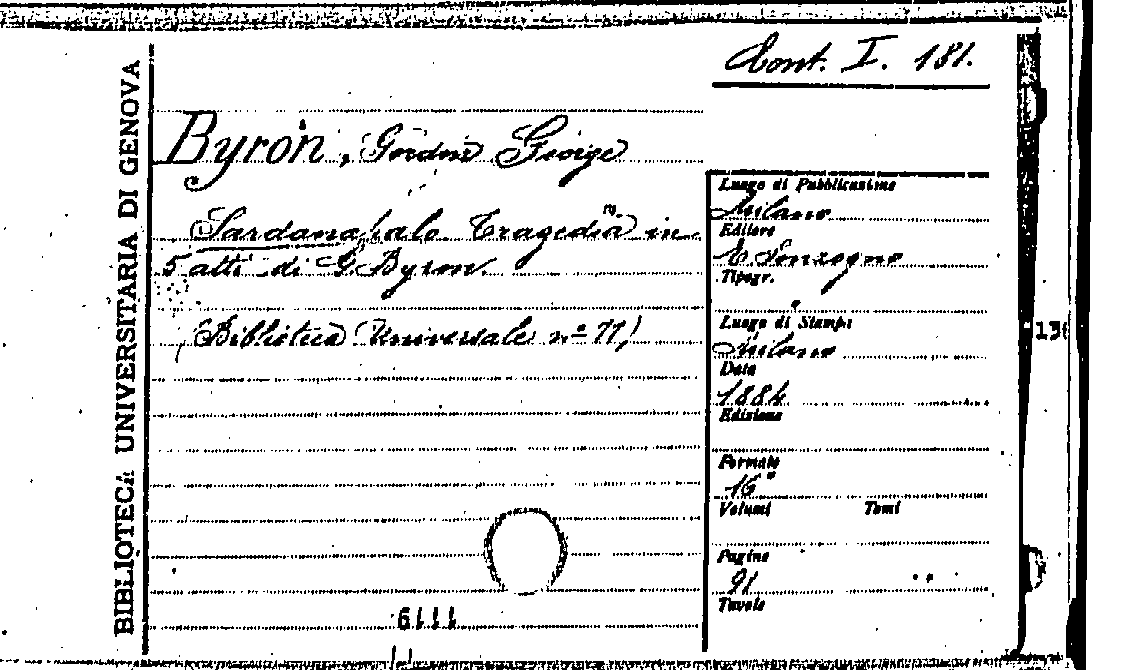 Cont. I. 181.
BIBLIOTECA UNIVERSITARIA DI GENOVA
Byron, Gordon George
Sardanapalo. Tragedia in
5 atti di G. Byron.
(Biblioteca Universale nº 77)
Luogo di Pubblicazione
Milano
Editore
E. Sonzogno
Tipogr.
Luogo di Stampa
Milano
Data
1884
Edizione
Formato
16°
Volumi Tomi
Pagine
91
Tavole